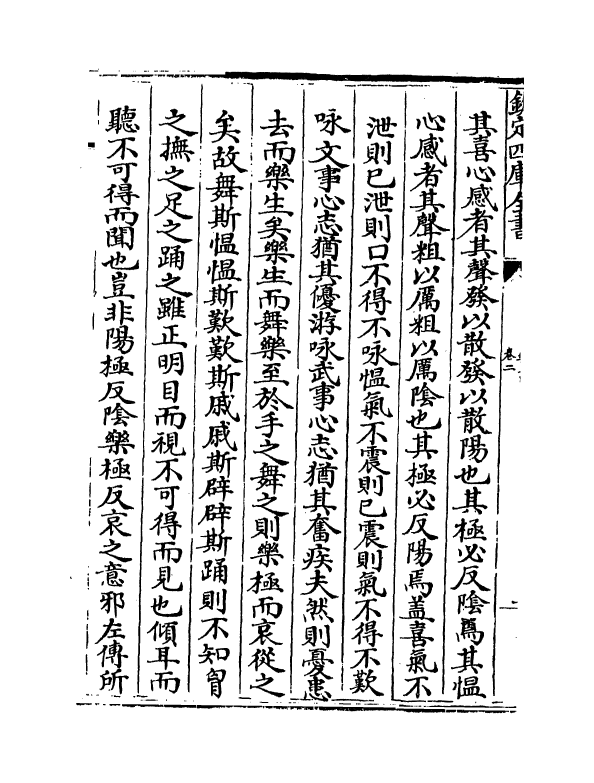 欽定四庫全書
卷二
其喜心感者其聲發以散發以散陽也其極必反陰焉其愠
心感者其聲粗以厲粗以厲陰也其極必反陽焉盖喜氣不
泄則已泄則口不得不咏愠氣不震則已震則氣不得不歎
咏文事心志猶其優游咏武事心志猶其奮疾夫然則憂患
去而樂生矣樂生而舞樂至於手之舞之則樂極而哀從之
矣故舞斯愠愠斯歎歎斯戚戚斯辟辟斯踊則不知胷
之撫之足之踊之雖正明目而視不可得而見也傾耳而
聽不可得而聞也豈非陽極反陰樂極反哀之意邪左傳所